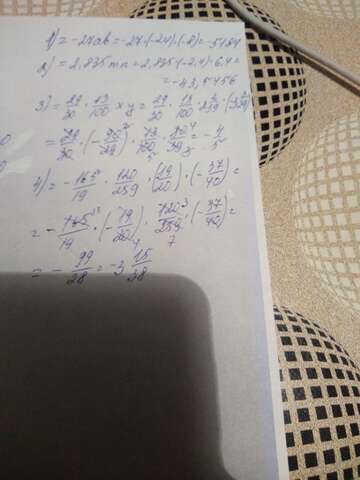 1) = -27ab = -27·(-24)·(-8) = -5184
2) = 2,835mn = 2,835·(-2,4)·6,4 =
= -43,5456
3) = 29/30 · 13/100 xy = 29/30 · 13/100 ·
= 29/30 · (-30/29) · 13/100 · 80/39 = -4/5
4) = -165/19 · 120/259 · (19/20) · (-37/40) =
= -165/19 · (-19/20) · 120/259 · (-37/40) =
= - 99/28 = -3 15/38